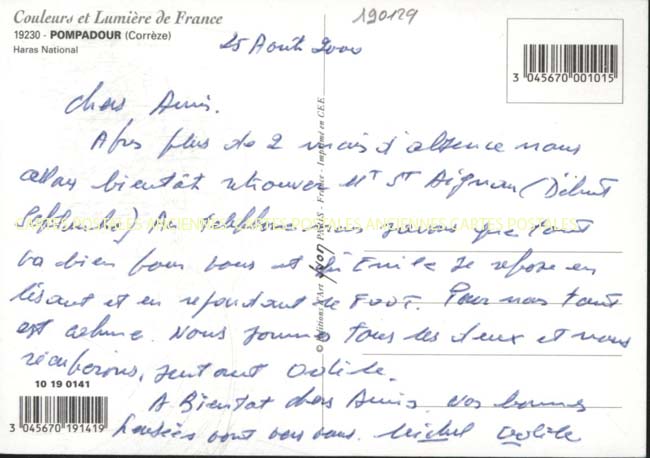 Couleurs et Lumière de France
19230 - POMPADOUR (Corrèze)
Haras National
190129
25 Août 2000
3 045670 001015
Chers Amis.
Après plus de 2 mois d'absence nous
allons bientôt retrouver Mt St Aignan (Début
Septembre) Au téléphone nous savons que tout
va bien pour vous et Emile se repose en
lisant et en regardant le Foot. Pour nous tout
est calme. Nous sommes tous les deux et nous
récupérons, surtout Odile.
A Bientôt chers Amis. Nos bonnes
Pensées vont vers vous. Michel Odile
CARTES POSTALES ANCIENNES CARTES POSTALES ANCIENNES CARTES POSTALES
© Editions d'Art yvon PARIS - France - Imprimé en CEE
10 19 0141
3 045670 191419